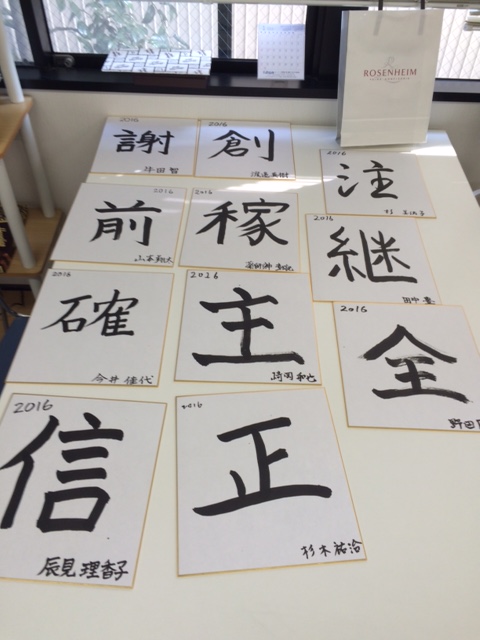 ROSENHEIM
2016
謝
2016
創
2016
注
2016
前
2016
稼
2016
継
田中
2016
確
今井 佳代
2016
主
崎田 和也
2016
全
野田
2016
信
辰見 理香子
2016
正
杉本 祐治